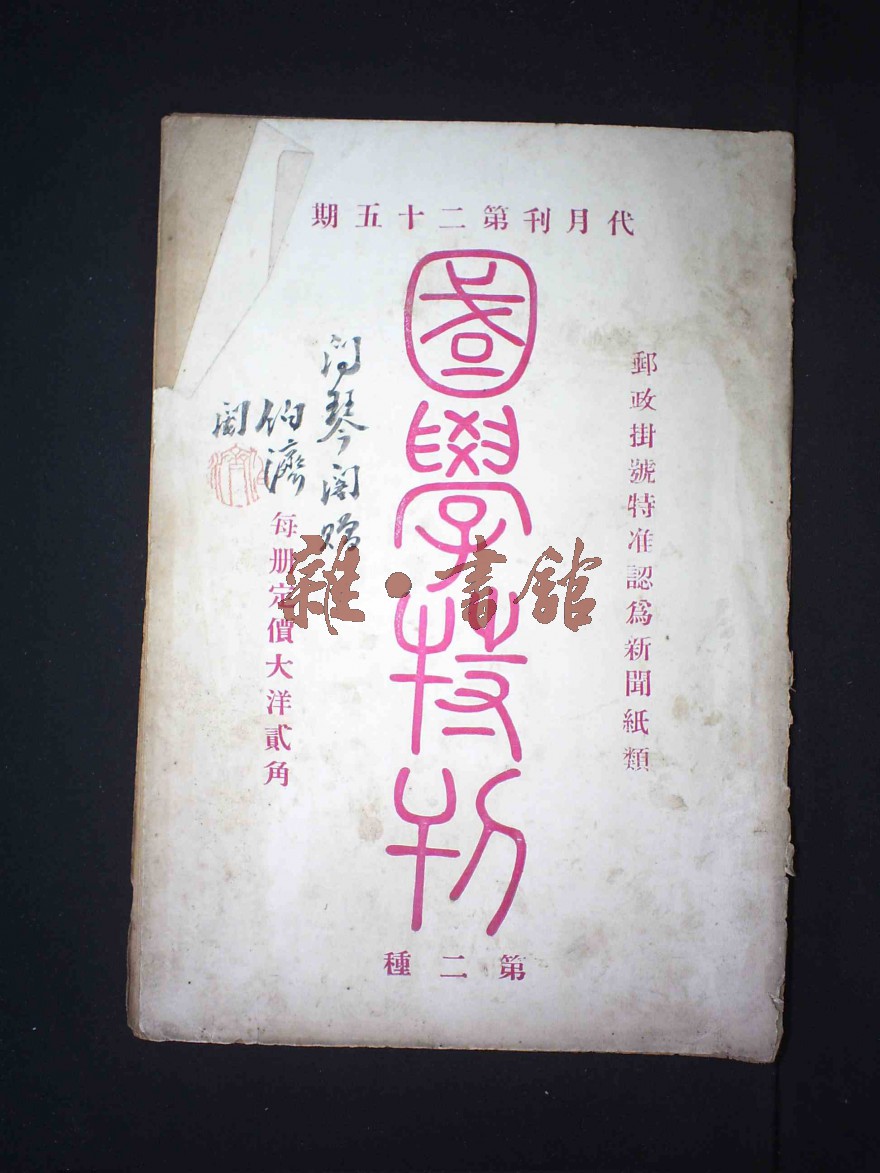 代月刊第二十五期
郵政掛號特准認為新聞紙類
國學特刊
琴閣贈
伯濟
每册定價大洋貳角
第二種
雜·書館